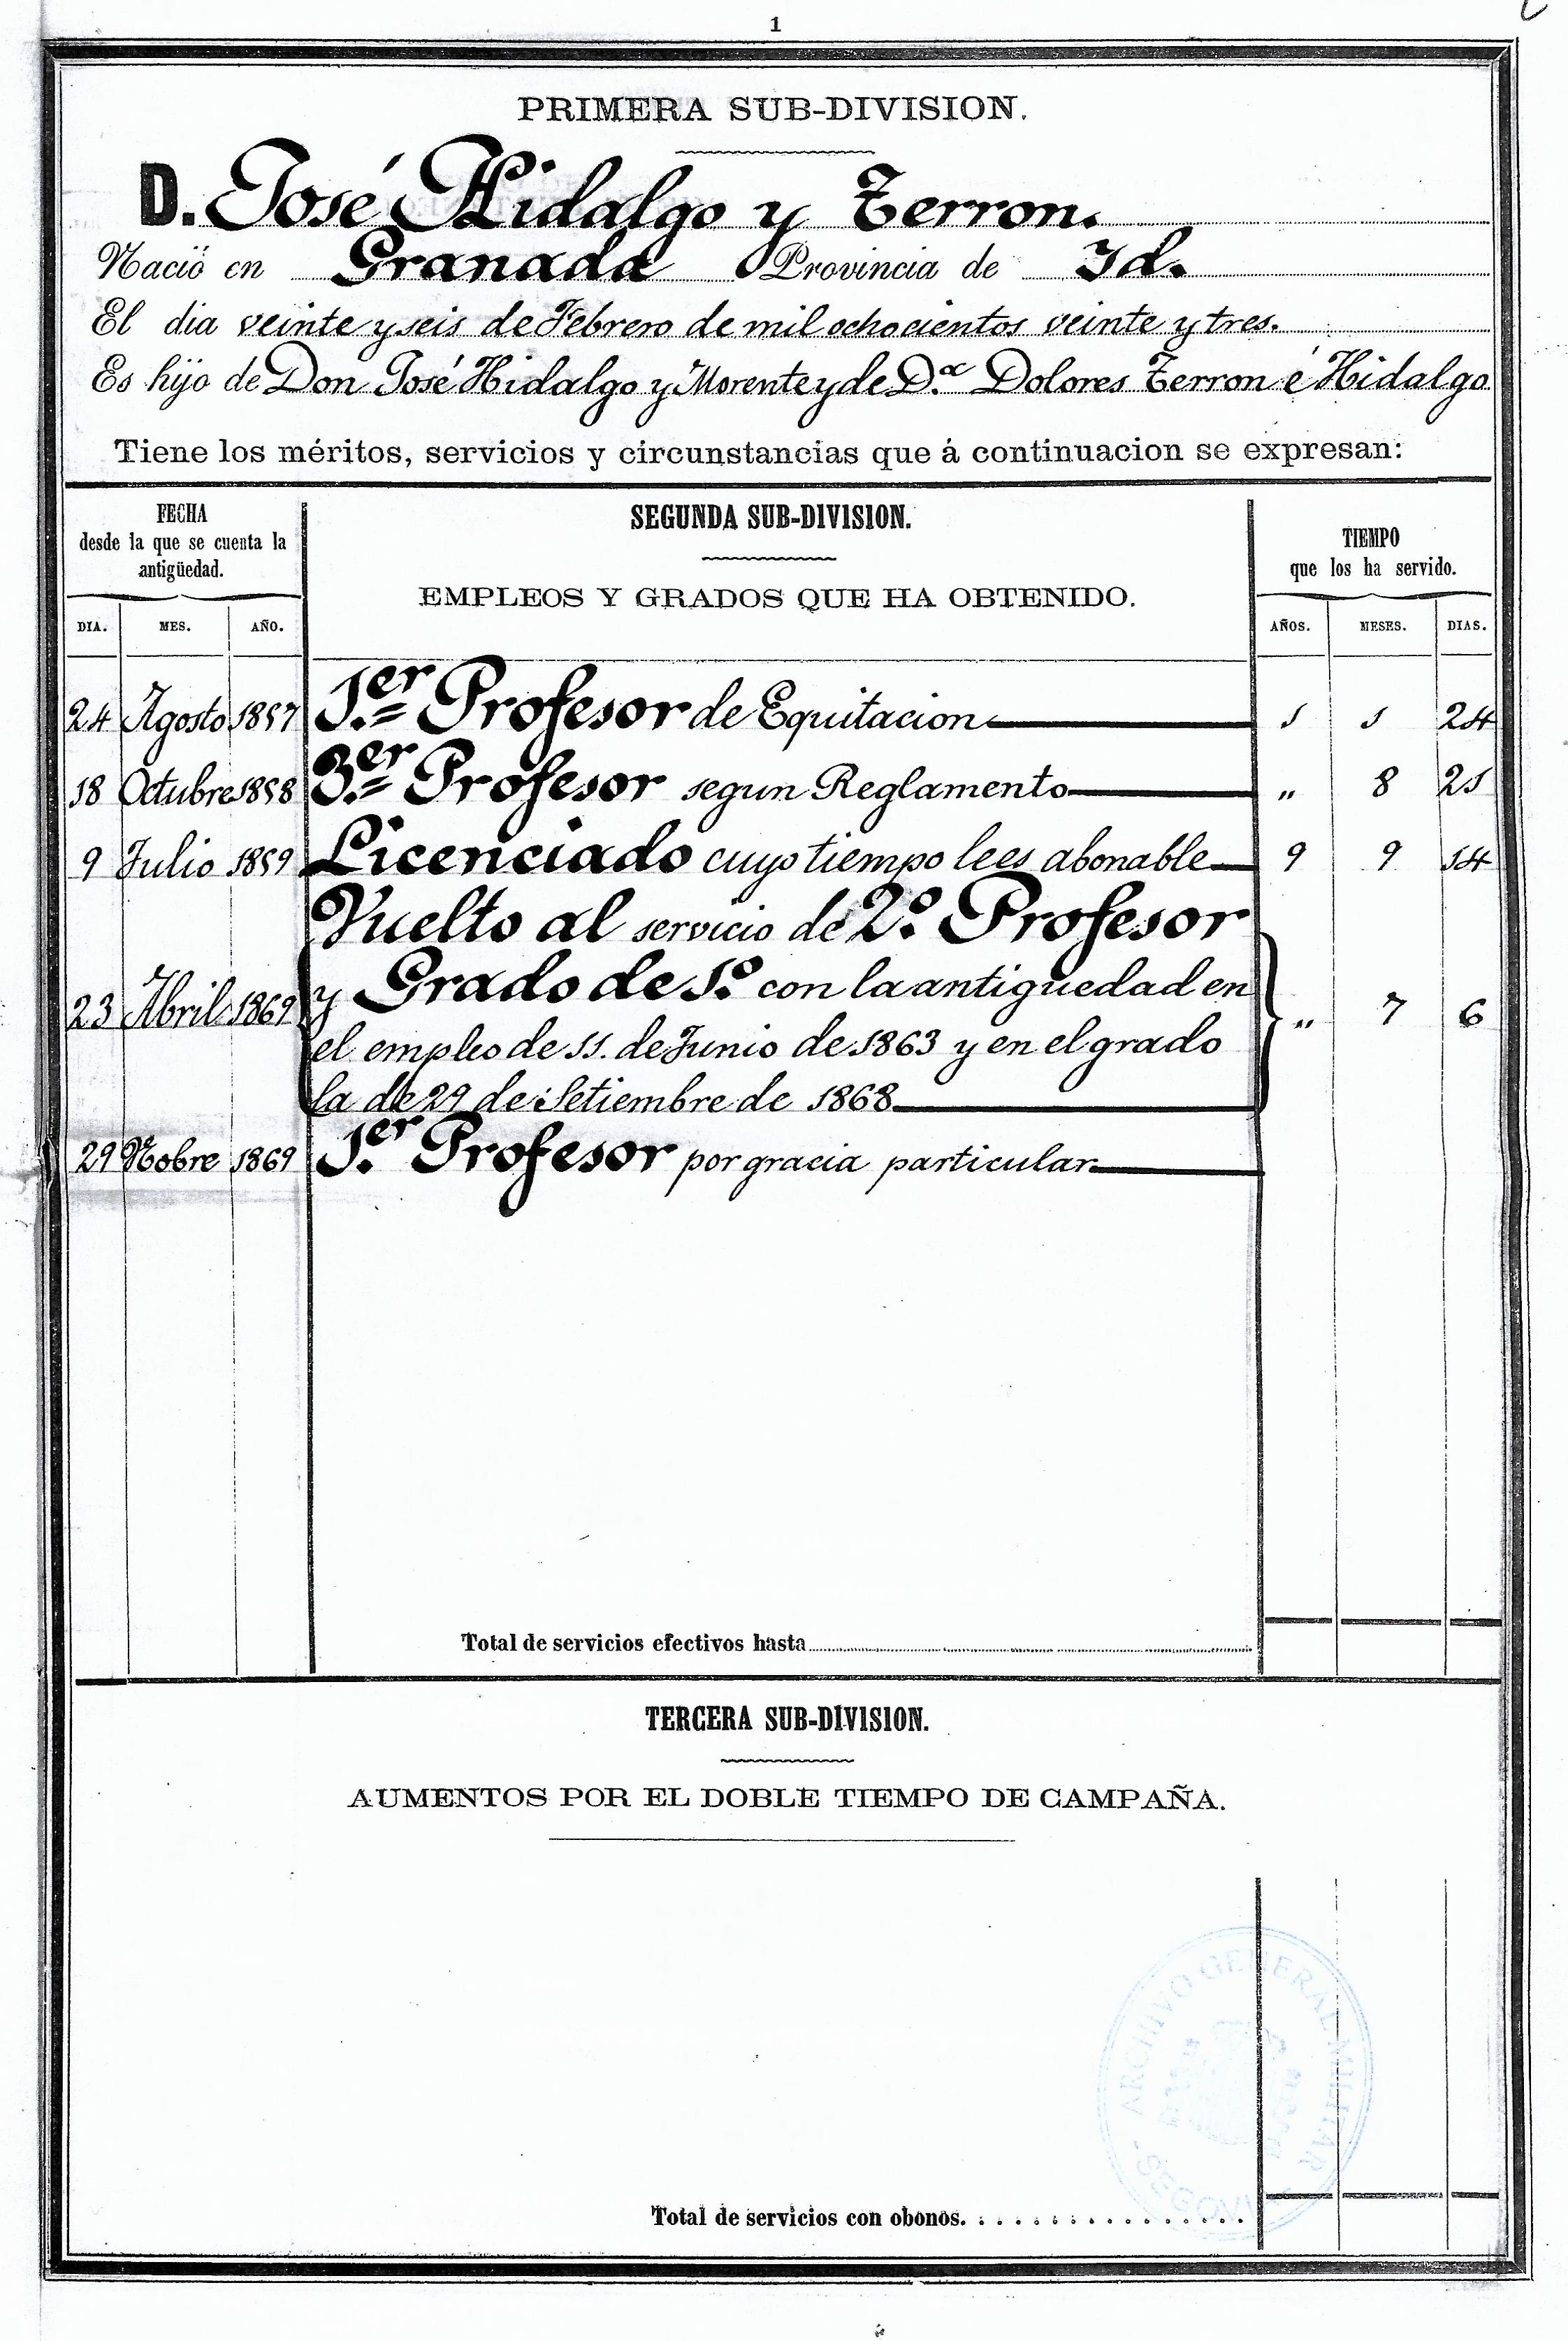 1
PRIMERA SUB-DIVISION.
D. José Hidalgo y Terron.
Nació en Granada Provincia de Id.
El dia veinte y seis de Febrero de mil ochocientos veinte y tres.
Es hijo de Don José Hidalgo y Morente y de D.ª Dolores Terron é Hidalgo
Tiene los méritos, servicios y circunstancias que á continuacion se expresan:
FECHA
desde la que se cuenta la
antigüedad.
DIA. MES. AÑO.
SEGUNDA SUB-DIVISION.
EMPLEOS Y GRADOS QUE HA OBTENIDO.
TIEMPO
que los ha servido.
AÑOS. MESES. DIAS.
24 Agosto 1857 1.er Profesor de Equitacion 1 1 24
18 Octubre 1858 3.er Profesor segun Reglamento " 8 21
9 Julio 1859 Licenciado cuyo tiempo le es abonable 9 9 14
Vuelto al servicio de 2.º Profesor
23 Abril 1869 y Grado de 1.º con la antiguedad en " 7 6
el empleo de 11. de Junio de 1863 y en el grado
la de 29 de Setiembre de 1868
29 Nobre 1869 1.er Profesor por gracia particular
Total de servicios efectivos hasta
TERCERA SUB-DIVISION.
AUMENTOS POR EL DOBLE TIEMPO DE CAMPAÑA.
ARCHIVO GENERAL MILITAR
SEGOVIA
Total de servicios con obonos.